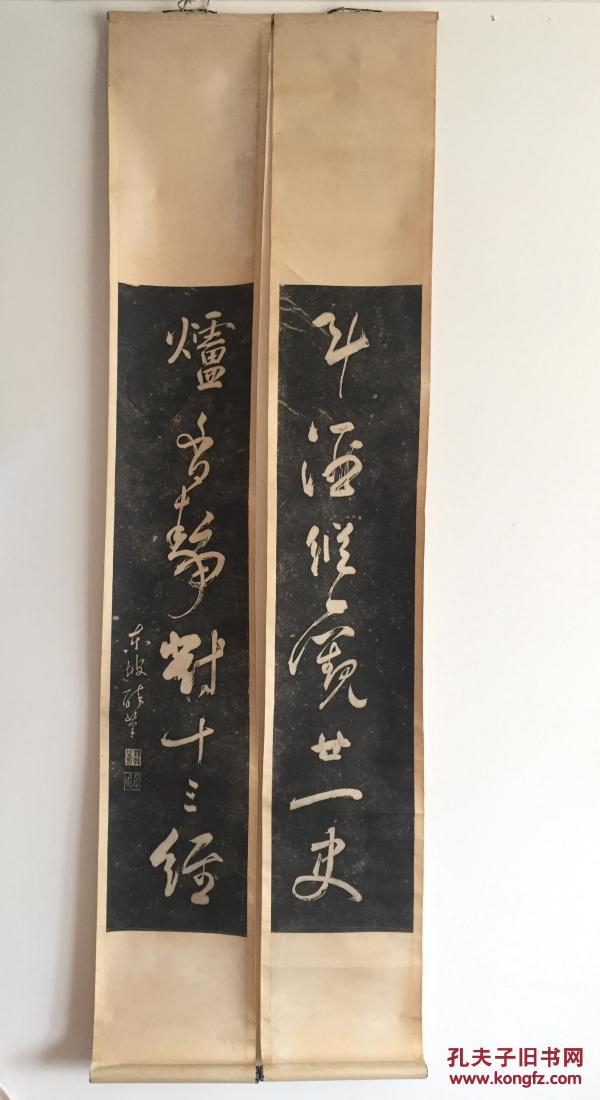 斗酒纵观廿一史
爐香静對十三經
东坡醉筆
孔夫子旧书网
www.kongfz.com